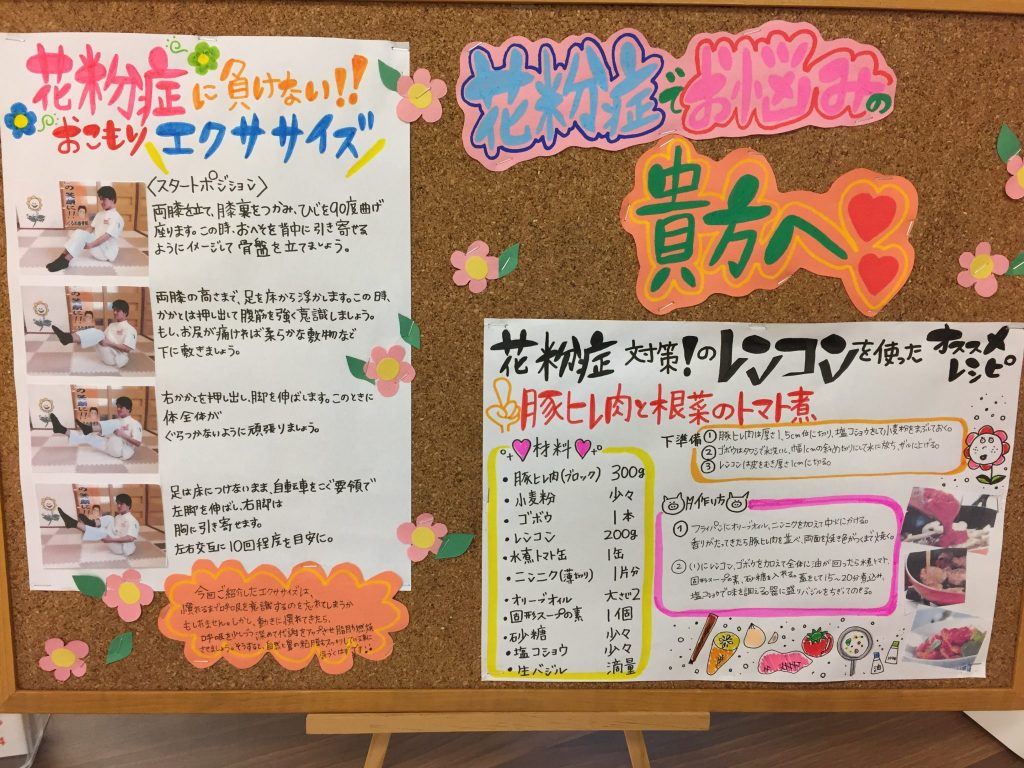 花粉症に負けない!!
おこもりエクササイズ
〈スタートポジション〉
両膝を立て、膝裏をつかみ、ひじを90度曲げ
座ります。この時、おへそを背中に引き寄せる
ようにイメージして骨盤を立てましょう。
両膝の高さまで、足を床から浮かします。この時、
かかとは押し出して腹筋を強く意識しましょう。
もし、お尻が痛ければ柔らかな敷物など
下に敷きましょう。
右かかとを押し出し、脚を伸ばします。このときに
体全体が
ぐらつかないように頑張りましょう。
足は床につけないまま、自転車をこぐ要領で
左脚を伸ばし、右脚は
胸に引き寄せます。
左右交互に10回程度を目安に。
今回ご紹介したエクササイズは、
慣れるまで呼吸を意識するのを忘れてしまうか
もしれません。しかし、動きに慣れてきたら、
呼吸を少しづつ深めて代謝をアップさせ脂肪燃焼
させましょう。そうすると、自然と鼻の粘膜も
花粉症でお悩みの
貴方へ
花粉症対策!のレンコンを使ったオススメ
レシピ
豚ヒレ肉と根菜のトマト煮
材料
・豚ヒレ肉(ブロック) 300g
・小麦粉 少々
・ゴボウ 1本
・レンコン 200g
・水煮トマト缶 1缶
・ニンニク(薄切り) 1片分
・オリーブオイル 大さじ2
・固形スープの素 1個
・砂糖 少々
・塩コショウ 少々
・生バジル 滴量
下準備
① 豚ヒレ肉は厚さ1.5cm位に切り、塩コショウをして小麦粉をまぶしておく。
② ゴボウはタワシで水洗いし、幅1cmの斜め切りにして水に放ち、ザルに上げる。
③ レンコンは皮をむき厚さ1cmに切る。
作り方
① フライパンにオリーブオイル、ニンニクを加えて中火にかける。
香りがたってきたら豚ヒレ肉を並べ、両面を焼き色がつくまで焼く。
② (1)にレンコン、ゴボウを加えて全体に油が回ったら水煮トマト、
固形スープの素、砂糖を入れる。蓋をして15〜20分煮込み、
塩コショウで味を調え器に盛りバジルをちぎってのせる。
油